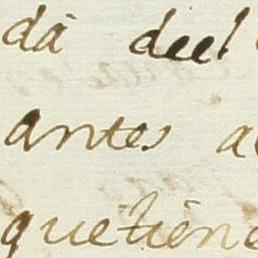 da deel
antes a
quetiene